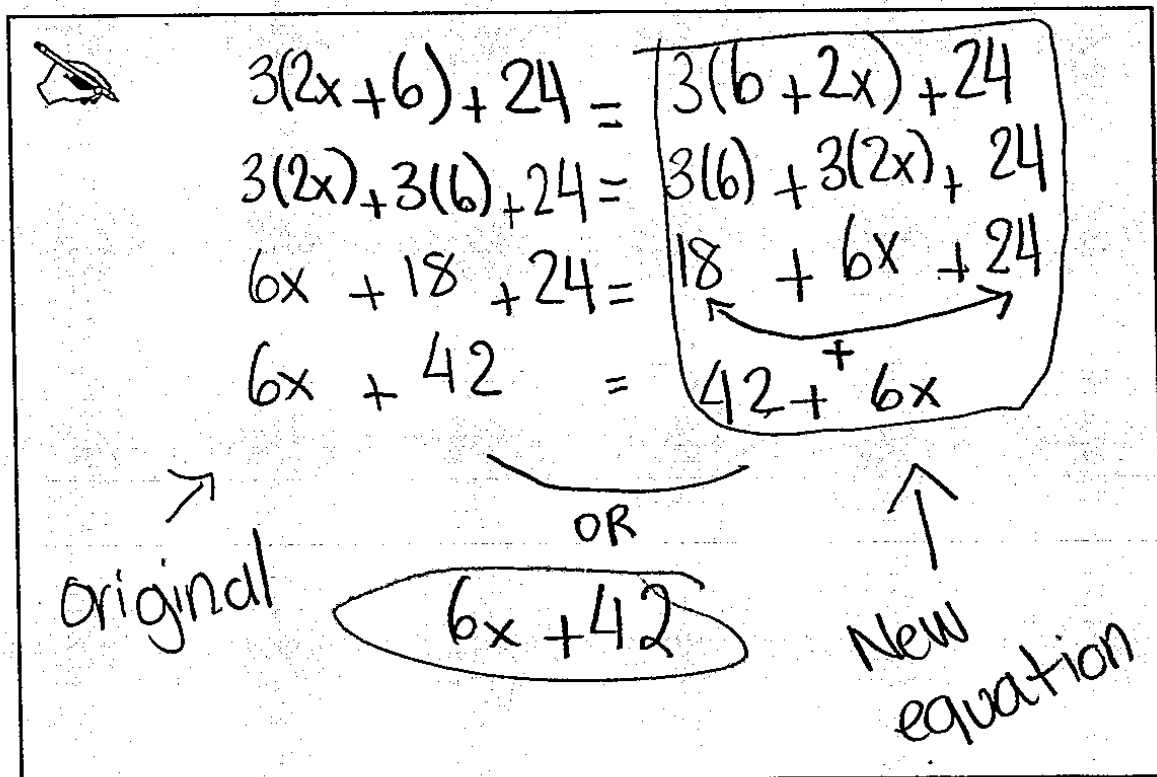 3(2x+6)+24 = 3(6+2x)+24
3(2x)+3(6)+24 = 3(6)+3(2x)+24
6x +18 +24 = 18 + 6x +24
+
6x + 42 = 42+ 6x
OR
original
6x +42
New
equation